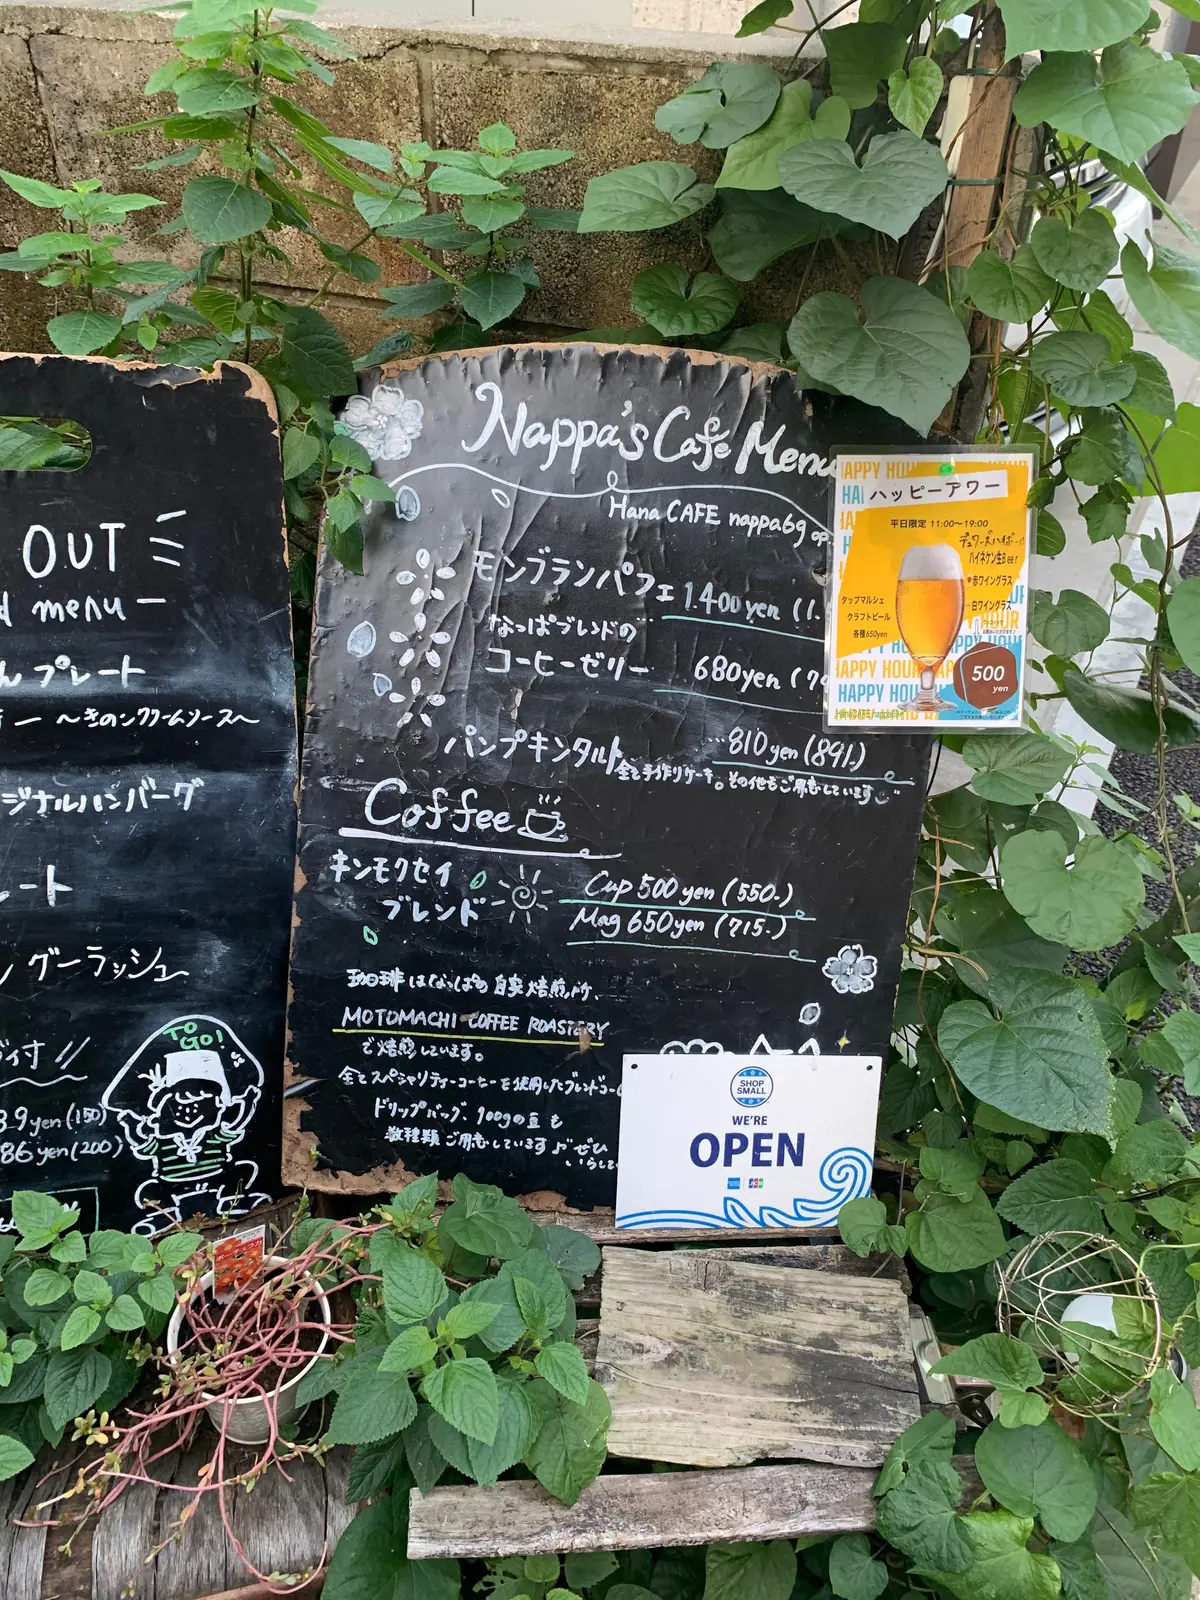 OUT
menu
んプレート
～きのこクリームソース～
ジナルハンバーグ
ート
グーラッシュ
付
yen (150)
86 yen (200)
TO GO!
Nappa's Cafe Menu
Hana CAFE nappa69
モンブランパフェ 1,400 yen (1.
なっぱブレンドの
コーヒーゼリー 680yen (7
パンプキンタルト …810 yen (891.)
全て手作りケーキ。その他もご用意しています
Coffee
キンモクセイ
ブレンド
Cup 500 yen (550.)
Mag 650 yen (715.)
珈琲はなっぱの自家焙煎所、
MOTOMACHI COFFEE ROASTERY
で焙煎しています。
全てスペシャリティーコーヒーを使用したブレンドコー
ドリップバッグ、100gの豆も
数種類ご用意しています♪ ぜひ
HAPPY HOUR
ハッピーアワー
平日限定 11:00～19:00
デュワーズハイボール
ハイネケン生Beer
♥赤ワイングラス
白ワイングラス
タップマルシェ
クラフトビール
各種650yen
500
yen
HAPPY HOUR
HanaCAFE nappa69
SHOP
SMALL
WE'RE
OPEN
JCB